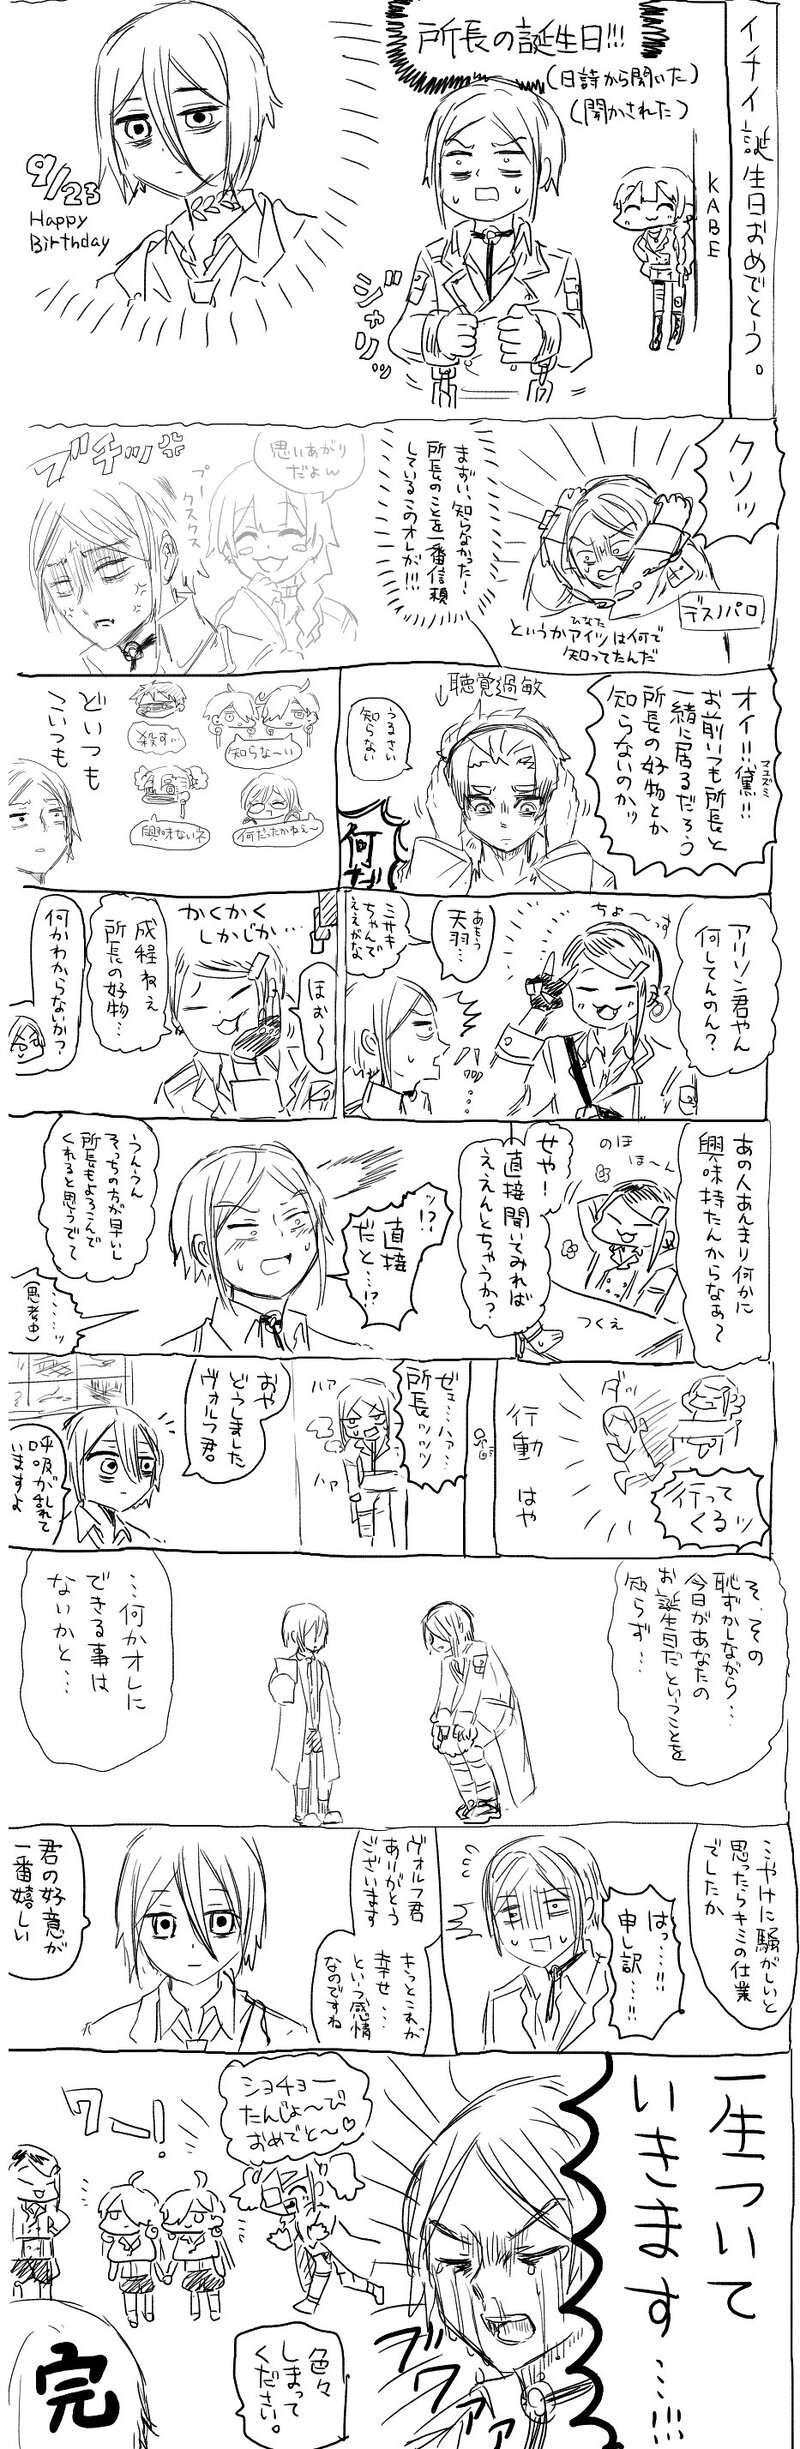 イチイ誕生日おめでとう。
KABE
所長の誕生日!!!
(日詩から聞いた)
(聞かされた)
ジャリッ
9/23
Happy
Birthday
クソッ
デスノパロ
というかアイツは何で
ひなた
知ってたんだ
まずい、知らなかった!
所長のことを一番信頼
しているこのオレが!!!
思いあがり
だよん
プークスクス
ブチッ
オイ!!黛!!
マユズミ
お前いつも所長と
一緒に居るだろう
所長の好物とか
知らないのかッ
聴覚過敏
うるさい
知らない
何だ
どいつも
こいつも
殺すぞ
知らな〜い
興味ないネ
何だったかねぇ〜
アリソン君やん
何してんのん?
ちょ〜っす
あもう
天羽…
ミサキ
ちゃんで
ええがな
かくかく
しかじか…
ほお〜
成程ねえ
所長の好物…
何かわからないか?
あの人あんまり何かに
興味持たんからなぁ〜
のほほ〜ん
つくえ
せや!
直接聞いてみれば
ええんとちゃうか?
ッ!?
直接
だと…!?
うんうん
そっちの方が早いし
所長もよろこんで
くれると思うでて
……ッ
(思考中)
ダッ
行って
くるッ
行動 はや
ぜェ…ハァ…
所長ッッッ
ハァ
ハァ
おや
どうしました
ヴォルフ君。
呼吸が乱れて
いますよ
そ、その
恥ずかしながら…
今日があなたの
お誕生日だということを
知らず…
…何かオレに
できる事は
ないかと…
…やけに騒がしいと
思ったらキミの仕業
でしたか
はっ…!!
申し訳…!!
ヴォルフ君
ありがとう
ございます
きっとこれが
幸せ…
という感情
なのですね
君の好意が
一番嬉しい
一生ついて
いきます…!!!
ブワァァ
ショチョー
たんじょ〜び
おめでと〜♡
ワー!
色々
しまって
ください。
完